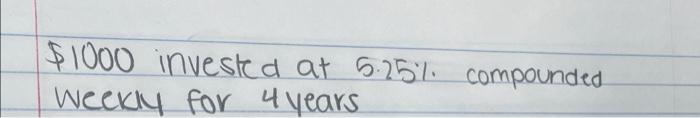 $1000 invested at 5.25%. compounded
Weekly for 4 years